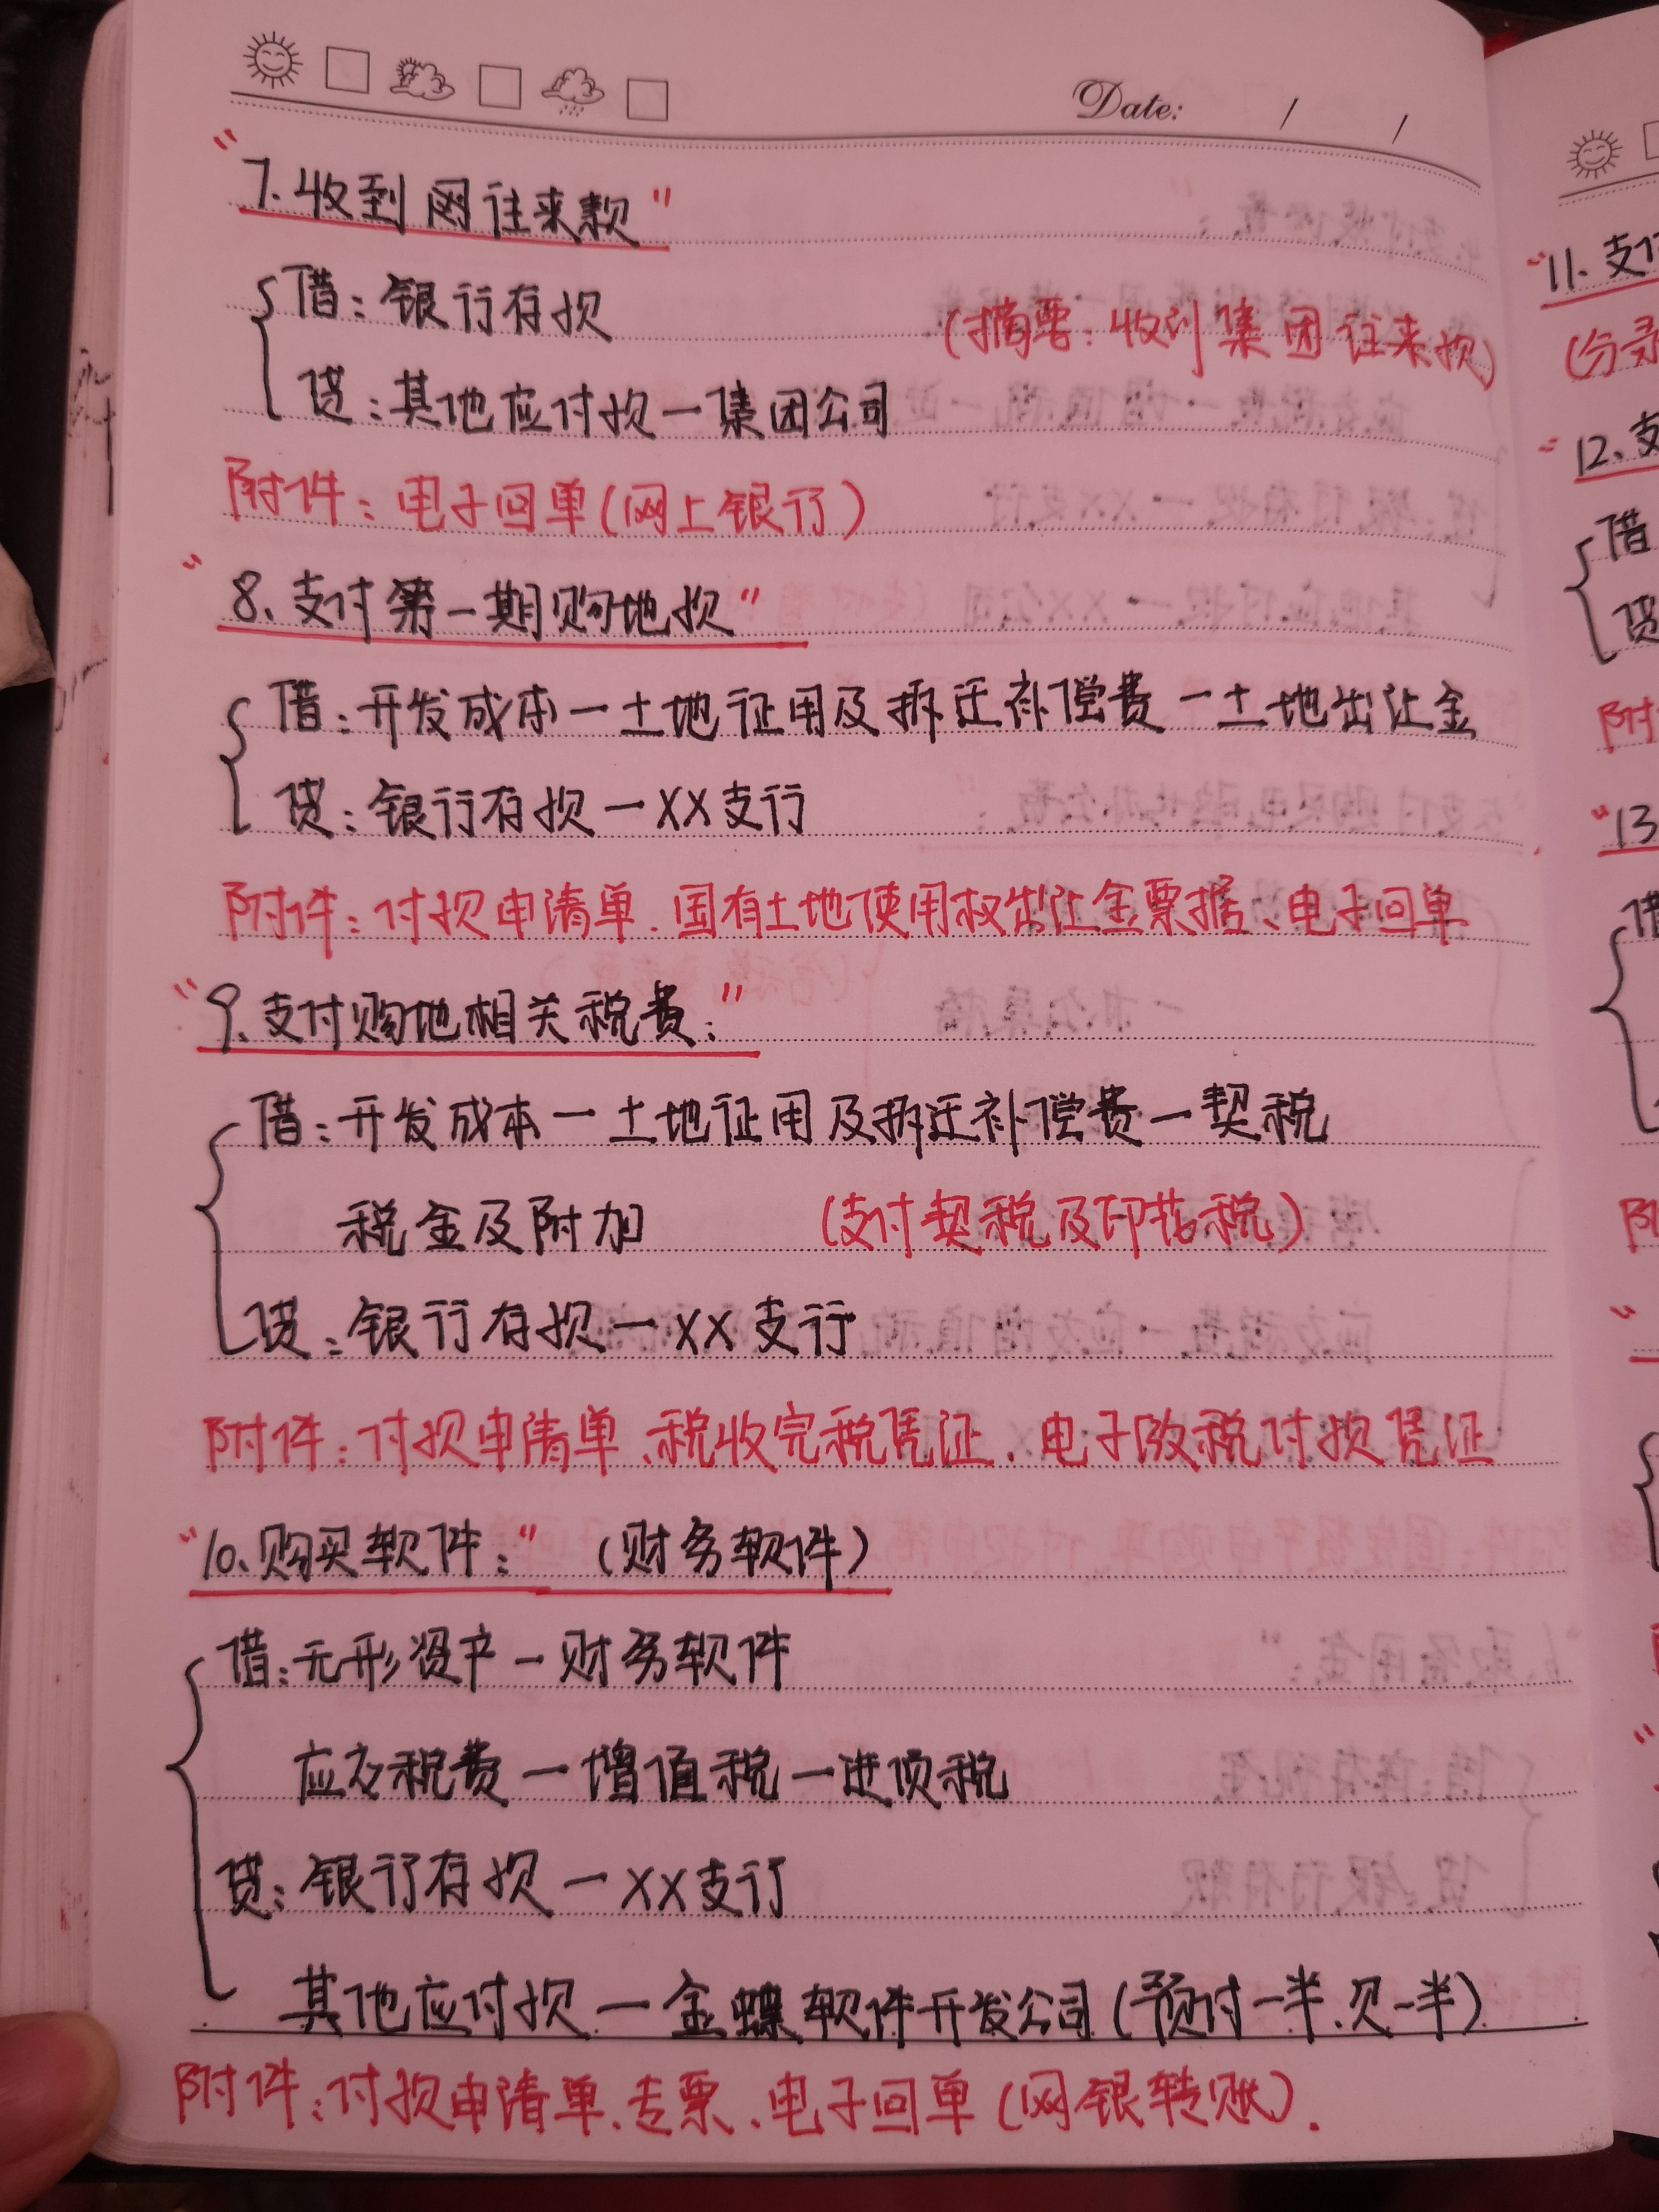 Date: / /
"7. 收到网往来款"
借: 银行存款
(摘要: 收到集团往来款)
贷: 其他应付款一集团公司
附件: 电子回单(网上银行)
"8、支付第一期购地款"
借: 开发成本一土地征用及拆迁补偿费一土地出让金
贷: 银行存款一XX支行
附件: 付款申请单、国有土地使用权出让金票据、电子回单
"9、支付购地相关税费:"
借: 开发成本一土地征用及拆迁补偿费一契税
税金及附加 (支付契税及印花税)
贷: 银行存款一XX支行
附件: 付款申请单、税收完税凭证、电子缴税付款凭证
"10、购买软件:" (财务软件)
借: 无形资产一财务软件
应交税费一增值税一进项税
贷: 银行存款一XX支行
其他应付款一金蝶软件开发公司(预付一半、欠一半)
附件: 付款申请单、专票、电子回单(网银转账).
"11、支付
(分录
"12、支
借
贷
附
"13
借
附